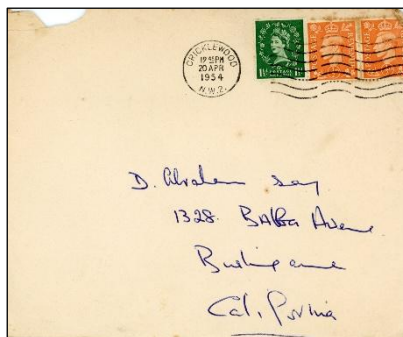 CRICKLEWOOD
12 45PM
20 APR
1954
N.W.2.
D. Abraham Say
1328 Balboa Avenue
Burlingame
California